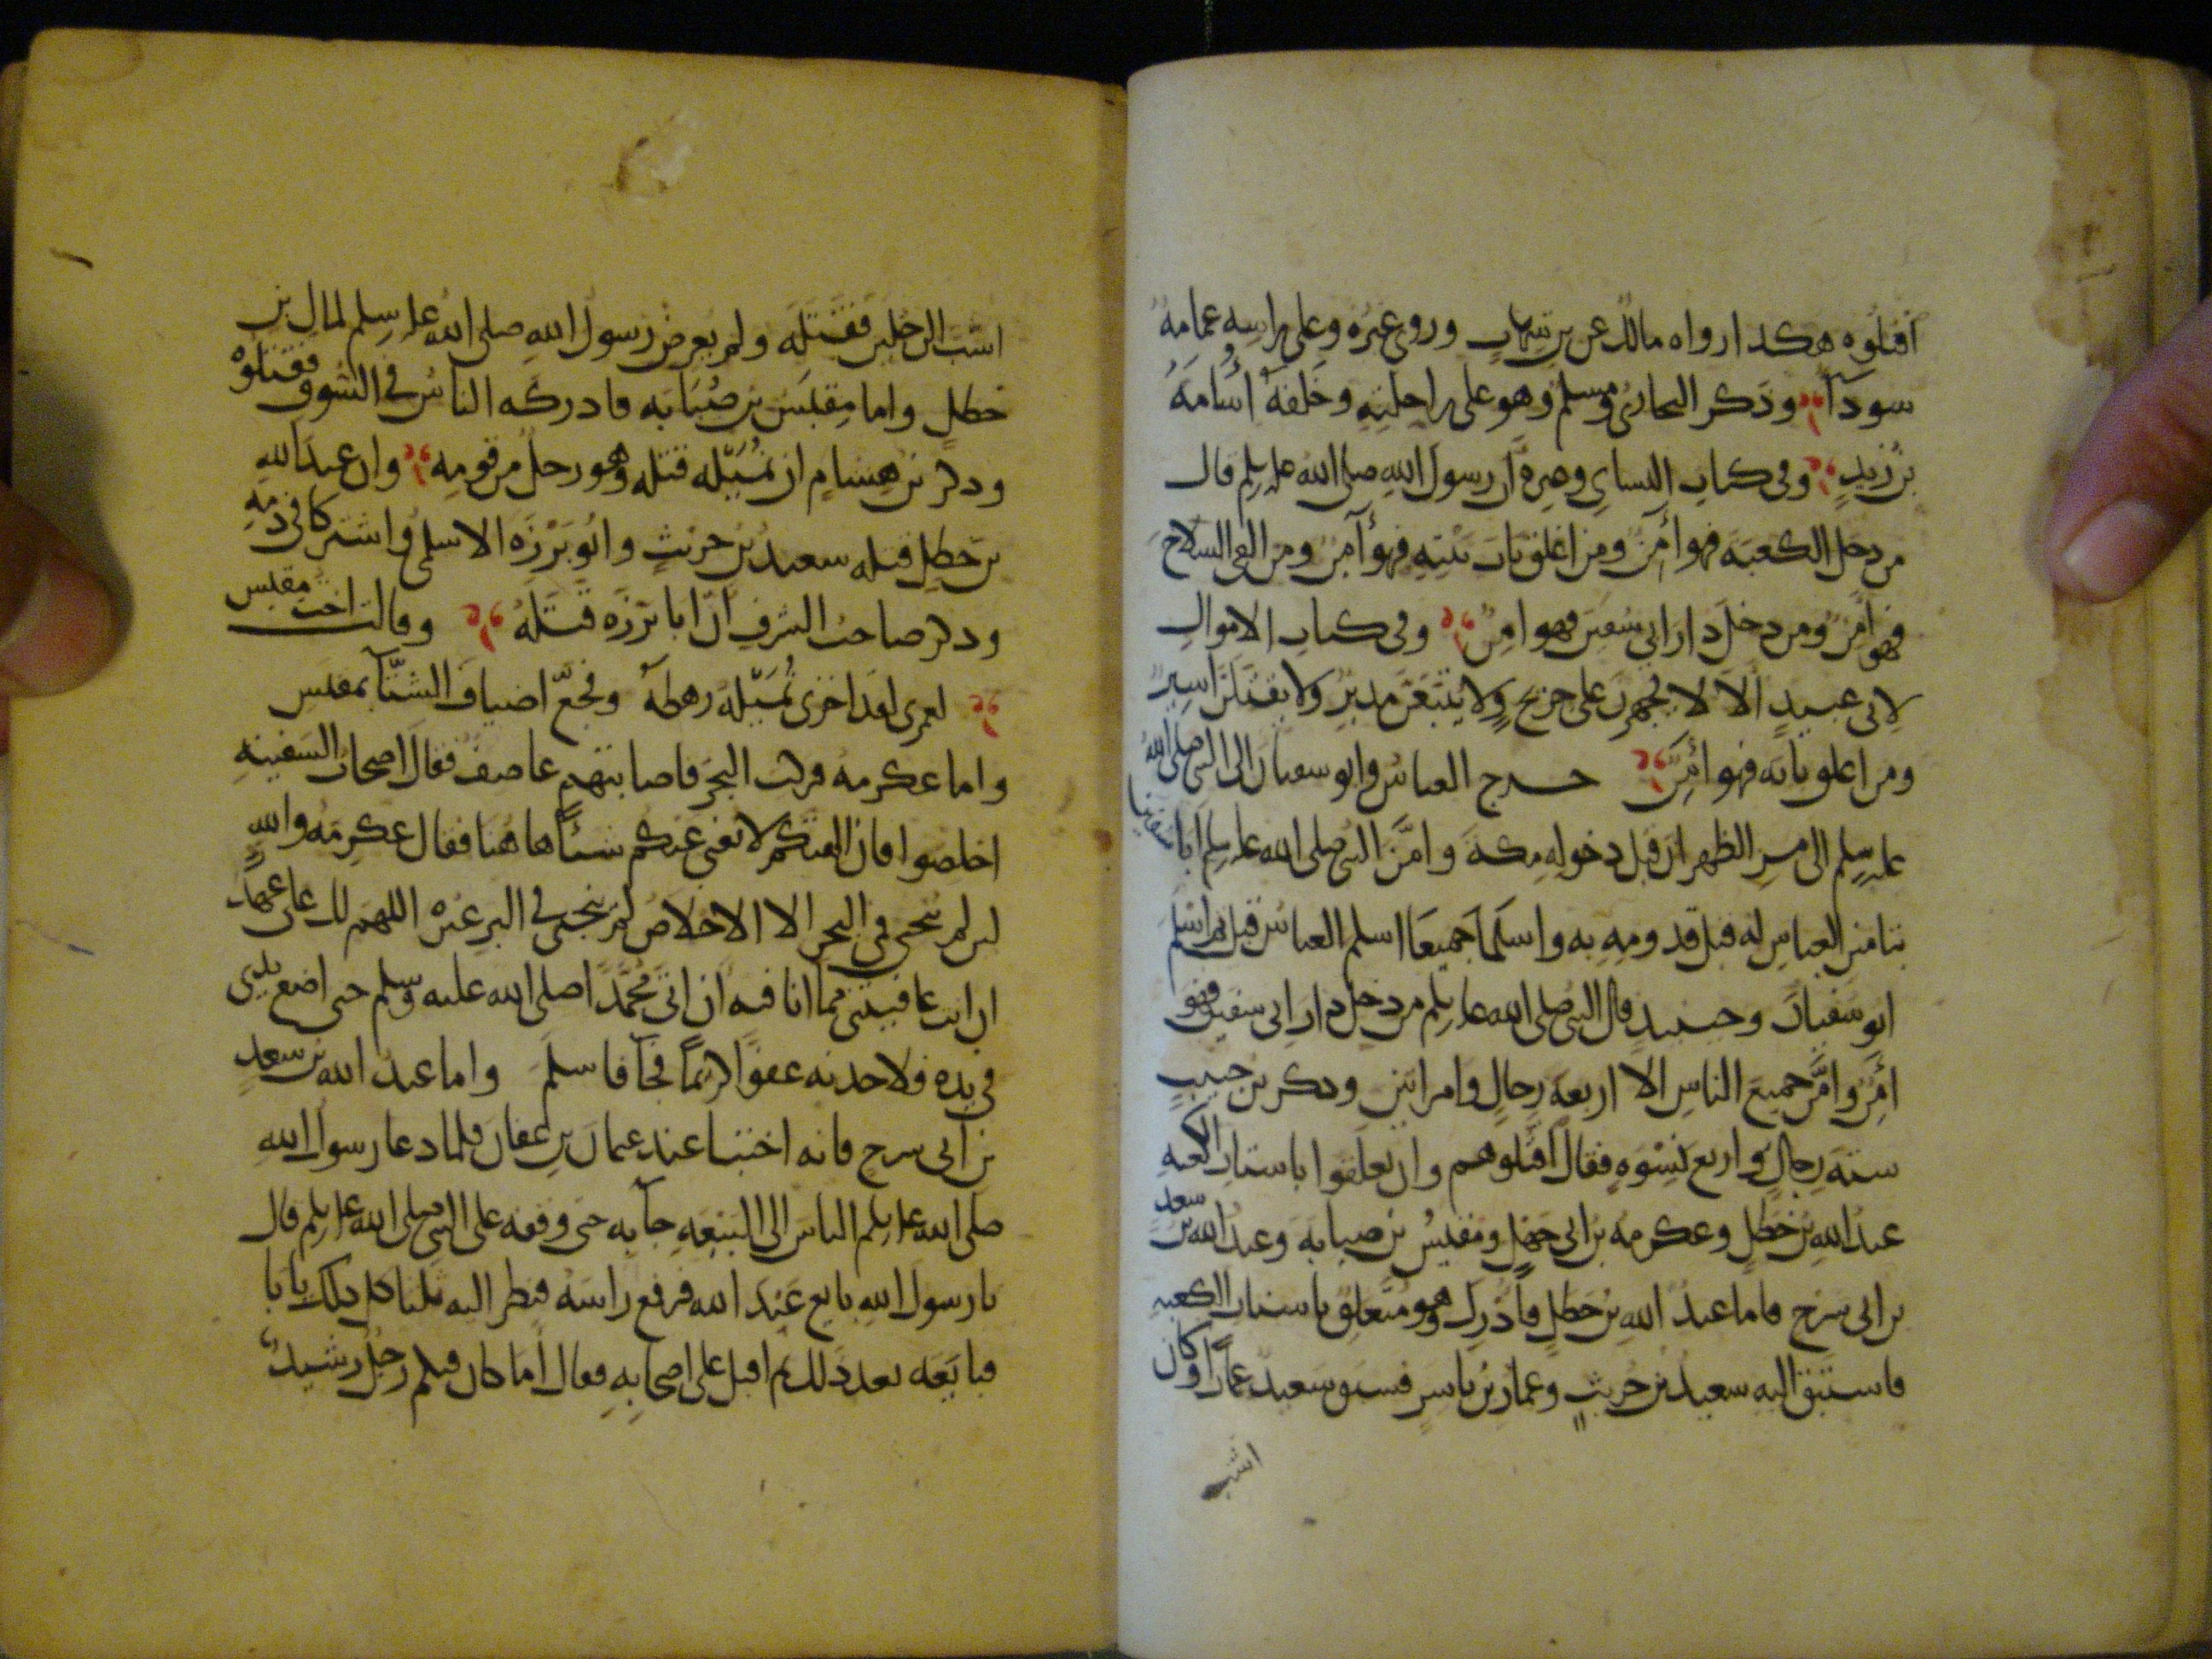 اقتلوه هكذا رواه مالك عن بن شهاب وروى غيره وعلى راسه عمامة
سودآ وذكر البخاري ومسلم وهو على راحلته وخلفه أسامة
بن زيد وفي كتاب النساى وغيره ان رسول الله صلى الله عليه وسلم قال
من دخل الكعبه فهو أمن ومن اغلق باب بيته فهو آمن ومن القى السلاح
فهو امن ومن دخل دار ابي سفين فهو امن وفي كتاب الاموال
لابي عبيد ألا لا تجهزن على جريح ولا يتبعن مدبر ولا يقتلن اسير
ومن اغلق بابه فهو أمن خرج العباس وابو سفيان الى النبي صلى الله
عليه وسلم الى مر الظهران قبل دخوله مكه وامن النبي صلى الله عليه وسلم ابا سفين
بتامين العباس له قبل قدومه به واسلما جميعا اسلم العباس قبل ثم اسلم
ابو سفيان وحينيد قال النبي صلى الله عليه وسلم من دخل دار ابي سفين فهو
أمن وامن جميع الناس الا اربعة رجال وامراتين وذكر بن حبيب
ستة رجال واربع نسوة فقال اقتلوهم وان تعلقوا باستار الكعبه
عبد الله بن خطل وعكرمه بن ابي جهل ومقيس بن صبابه وعبد الله بن سعد
بن ابي سرح فاما عبد الله بن خطل فأدرك وهو متعلق باستار الكعبه
فاستبق اليه سعيد بن حريث وعمار بن ياسر فسبق سعيد عمارا وكان
اشب
اشب الرجلين فقتله ولم يعرض رسول الله صلى الله عليه وسلم لمال بن
خطل واما مقيس بن صبابه فادركه الناس في السوق فقتلوه
وذكر بن هشام ان نميله قتله وهو رجل من قومه وان عبد الله
بن خطل قتله سعيد بن حريث وابو برزه الاسلمي واشتركا في دمه
وذكر صاحب الشرف ان ابا برزه قتله وقالت اخت مقيس
لعمري لقد اخزى نميله رهطه وفجع اضياف الشتآ بمقيس
واما عكرمه فركب البحر فاصابتهم عاصف فقال اصحاب السفينه
اخلصوا فان الهتكم لا تغني عنكم شيئا هاهنا فقال عكرمه والله
لين لم ينجني في البحر الا الاخلاص لم ينجني في البر غيره اللهم لك علي عهد
ان انت عافيتني مما انا فيه ان اتي محمدا صلى الله عليه وسلم حتى اضع يدي
في يده فلاجدنه عفوا كريما فجآ فاسلم واما عبد الله بن سعد
بن ابي سرح فانه اختبا عند عثمان بن عفان فلما دعا رسول الله
صلى الله عليه وسلم الناس الى البيعه جآ به حتى وقفه على النبي صلى الله عليه وسلم قال
يا رسول الله بايع عبد الله فرفع راسه فنظر اليه ثلثا كل ذلك يابا
فبايعه بعد ذلك ثم اقبل على اصحابه فقال أما كان فيكم رجل رشيد